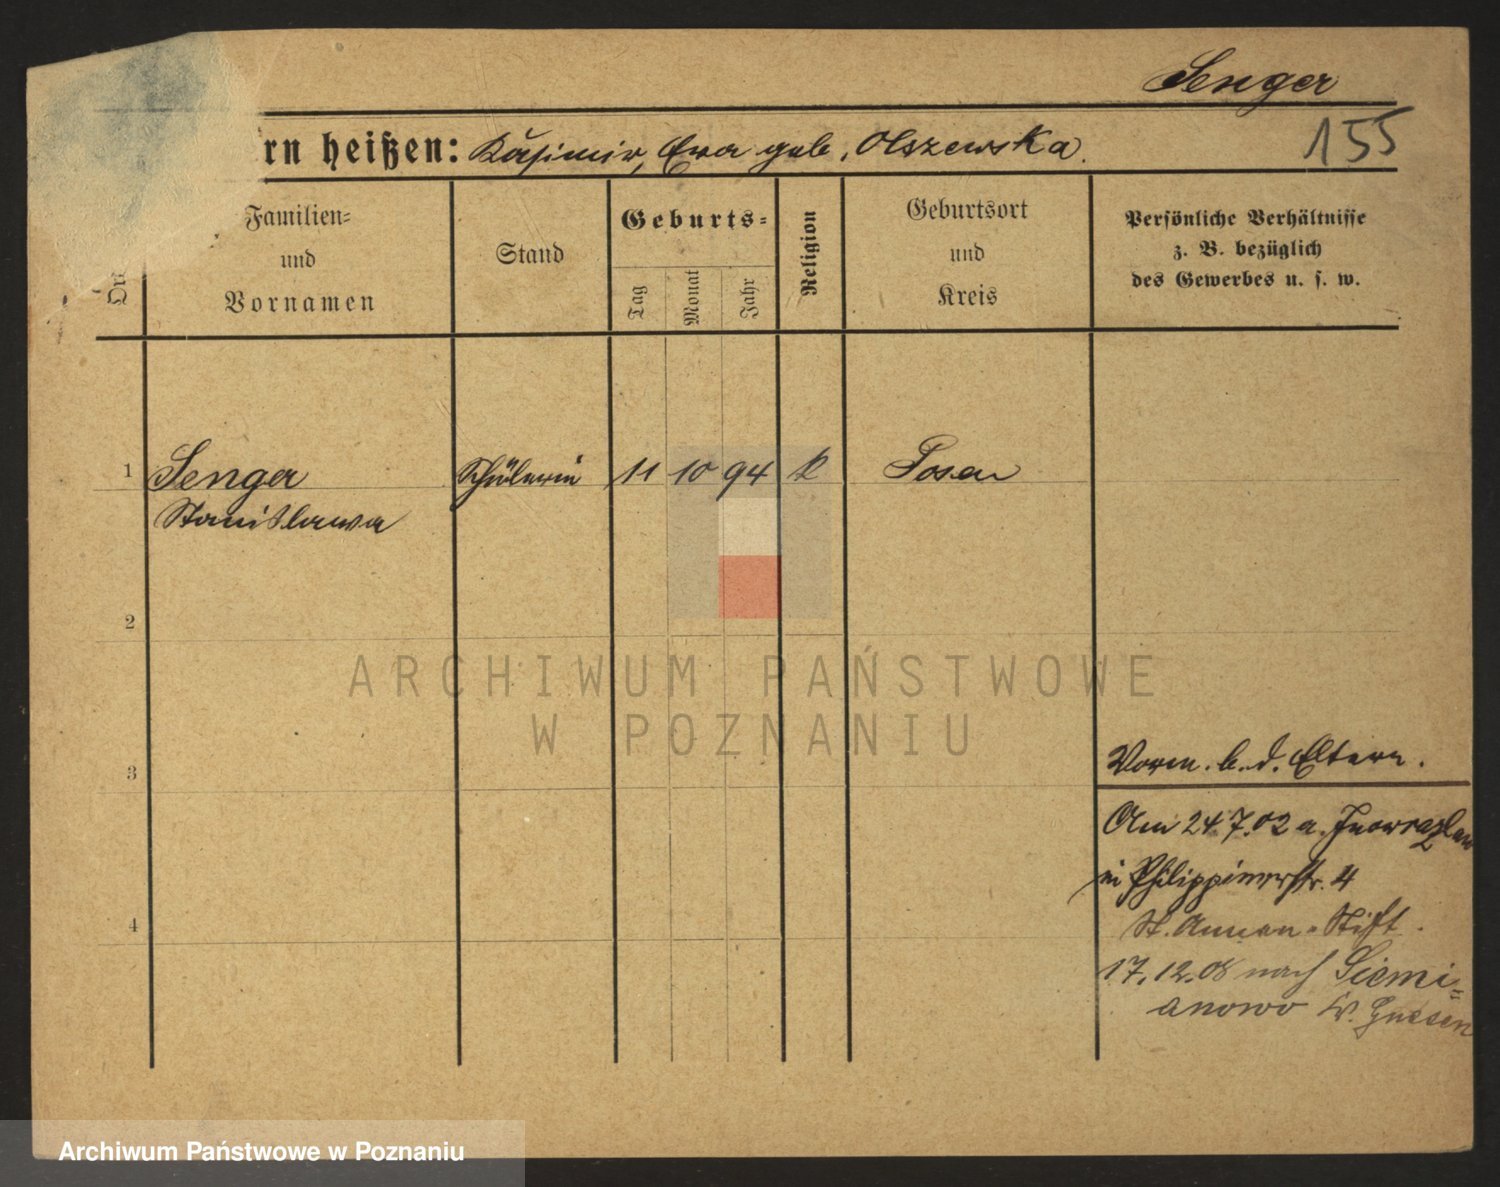 Senger
rn heißen: Kasimir, Ewa geb. Olszewska.
155
Familien-
und
Vornamen
Stand
Geburts-
Tag
Monat
Jahr
Religion
Geburtsort
und
Kreis
Persönliche Verhältnisse
z. B. bezüglich
des Gewerbes u. s. w.
1 Senger Schülerin 11 10 94 k Posen
Stanislawa
2
3
4
Vorm. b. d. Eltern.
Am 24.7.02 a. Inowrazlaw
in Philippinerstr. 4
St. Annen-Stift.
17.12.08 nach Siemi-
anowo Kr. Gnesen
ARCHIWUM PAŃSTWOWE
W POZNANIU
Archiwum Państwowe w Poznaniu